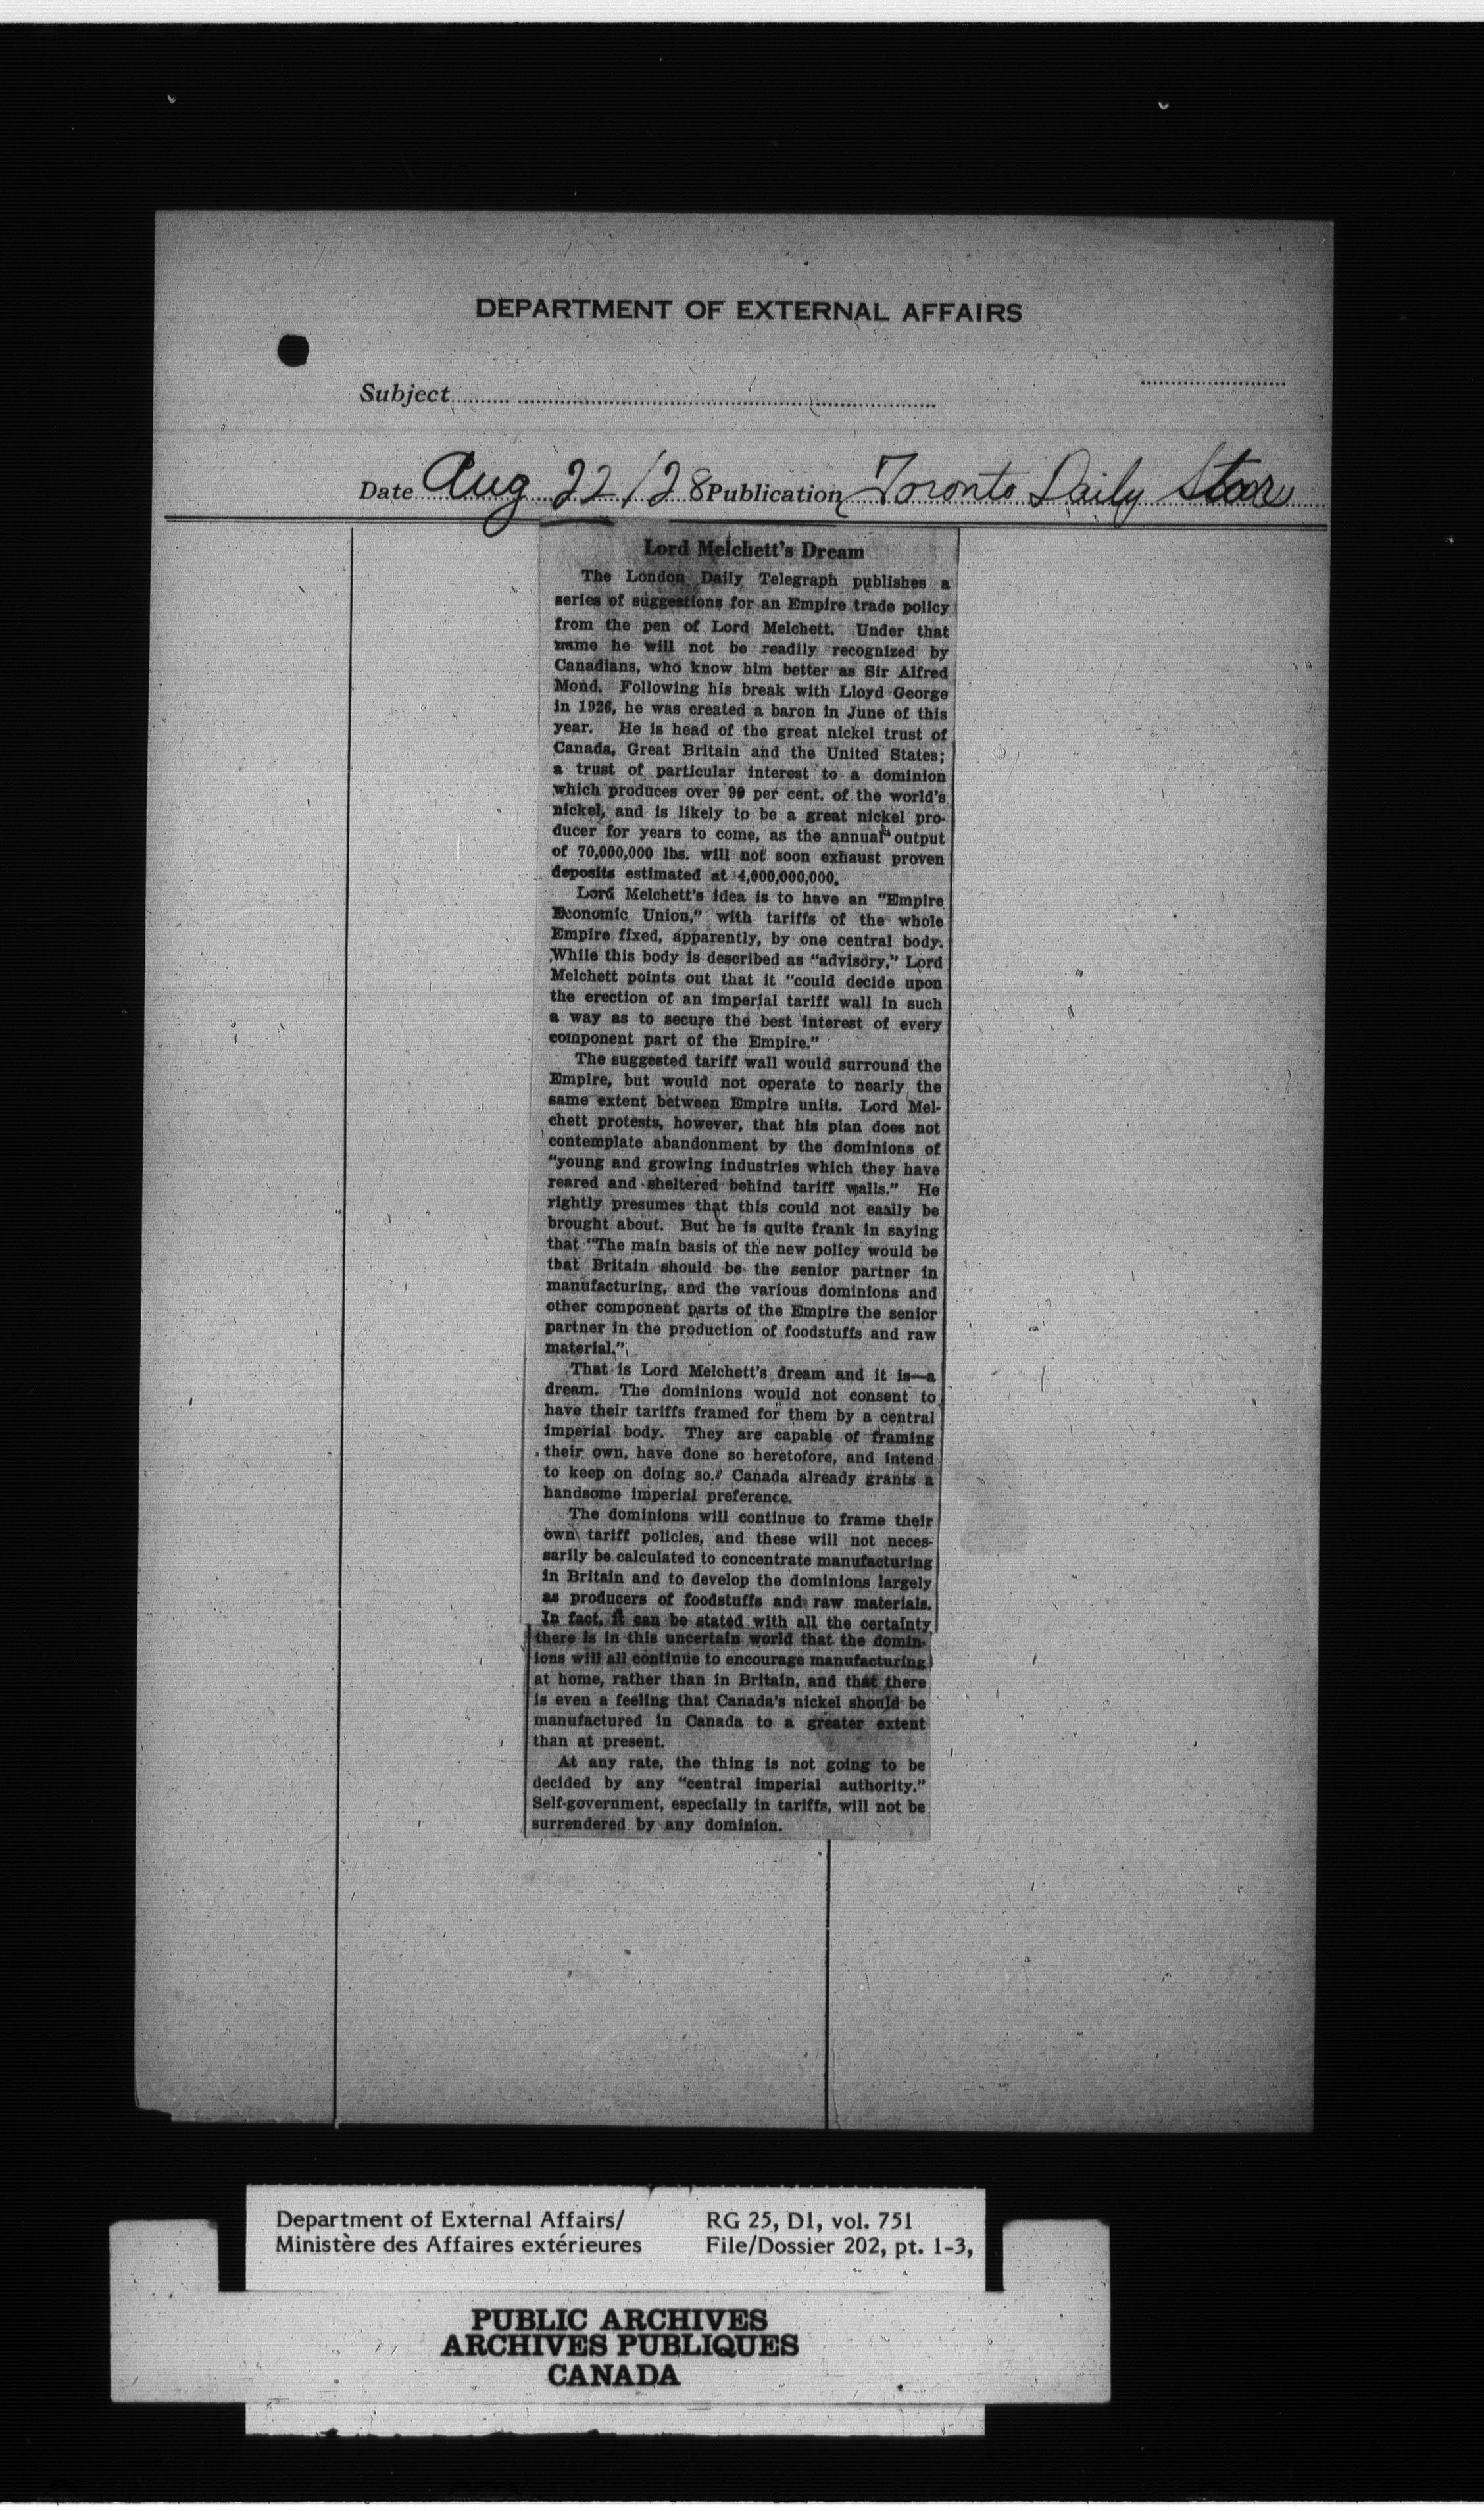 DEPARTMENT OF EXTERNAL AFFAIRS
Subject
Date Aug 22/28 Publication Toronto Daily Star
Lord Melchett's Dream
The London Daily Telegraph publishes a
series of suggestions for an Empire trade policy
from the pen of Lord Melchett. Under that
name he will not be readily recognized by
Canadians, who know him better as Sir Alfred
Mond. Following his break with Lloyd George
in 1926, he was created a baron in June of this
year. He is head of the great nickel trust of
Canada, Great Britain and the United States;
a trust of particular interest to a dominion
which produces over 90 per cent. of the world's
nickel, and is likely to be a great nickel pro-
ducer for years to come, as the annual output
of 70,000,000 lbs. will not soon exhaust proven
deposits estimated at 4,000,000,000.
Lord Melchett's idea is to have an "Empire
Economic Union," with tariffs of the whole
Empire fixed, apparently, by one central body.
While this body is described as "advisory," Lord
Melchett points out that it "could decide upon
the erection of an imperial tariff wall in such
a way as to secure the best interest of every
component part of the Empire."
The suggested tariff wall would surround the
Empire, but would not operate to nearly the
same extent between Empire units. Lord Mel-
chett protests, however, that his plan does not
contemplate abandonment by the dominions of
"young and growing industries which they have
reared and sheltered behind tariff walls." He
rightly presumes that this could not easily be
brought about. But he is quite frank in saying
that "The main basis of the new policy would be
that Britain should be the senior partner in
manufacturing, and the various dominions and
other component parts of the Empire the senior
partner in the production of foodstuffs and raw
material."
That is Lord Melchett's dream and it is—a
dream. The dominions would not consent to
have their tariffs framed for them by a central
imperial body. They are capable of framing
their own, have done so heretofore, and intend
to keep on doing so. Canada already grants a
handsome imperial preference.
The dominions will continue to frame their
own tariff policies, and these will not neces-
sarily be calculated to concentrate manufacturing
in Britain and to develop the dominions largely
as producers of foodstuffs and raw materials.
In fact, it can be stated with all the certainty
there is in this uncertain world that the domin-
ions will all continue to encourage manufacturing
at home, rather than in Britain, and that there
is even a feeling that Canada's nickel should be
manufactured in Canada to a greater extent
than at present.
At any rate, the thing is not going to be
decided by any "central imperial authority."
Self-government, especially in tariffs, will not be
surrendered by any dominion.
Department of External Affairs/ RG 25, D1, vol. 751
Ministère des Affaires extérieures File/Dossier 202, pt. 1-3,
PUBLIC ARCHIVES
ARCHIVES PUBLIQUES
CANADA